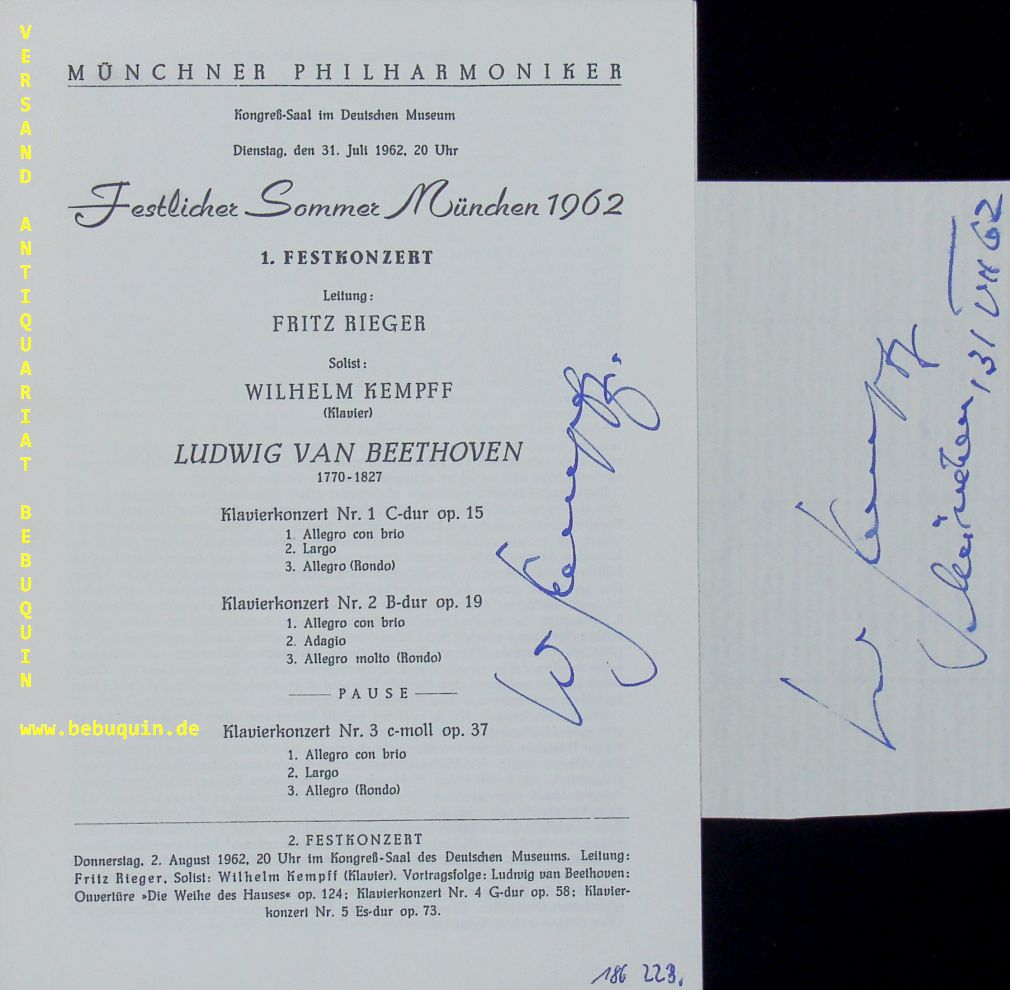 MÜNCHNER PHILHARMONIKER
Kongreß-Saal im Deutschen Museum
Dienstag, den 31. Juli 1962, 20 Uhr
Festlicher Sommer München 1962
1. FESTKONZERT
Leitung:
FRITZ RIEGER
Solist:
WILHELM KEMPFF
(Klavier)
LUDWIG VAN BEETHOVEN
1770-1827
Klavierkonzert Nr. 1 C-dur op. 15
1. Allegro con brio
2. Largo
3. Allegro (Rondo)
Klavierkonzert Nr. 2 B-dur op. 19
1. Allegro con brio
2. Adagio
3. Allegro molto (Rondo)
PAUSE
Klavierkonzert Nr. 3 c-moll op. 37
1. Allegro con brio
2. Largo
3. Allegro (Rondo)
2. FESTKONZERT
Donnerstag, 2. August 1962, 20 Uhr im Kongreß-Saal des Deutschen Museums. Leitung:
Fritz Rieger, Solist: Wilhelm Kempff (Klavier). Vortragsfolge: Ludwig van Beethoven:
Ouvertüre »Die Weihe des Hauses« op. 124; Klavierkonzert Nr. 4 G-dur op. 58; Klavier-
konzert Nr. 5 Es-dur op. 73.
186 223.
W Kempff.
W Kempff
München, 31 VII 62
VERSAND ANTIQUARIAT BEBUQUIN
www.bebuquin.de